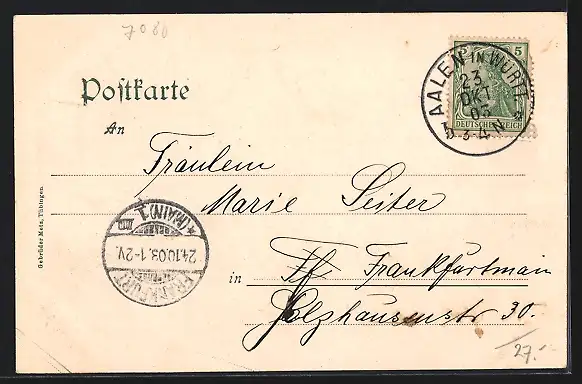 7080
Postkarte
An
Fräulein
Marie Seiter
in Ff Frankfurtmain
Holzhausenstr 30.
27.-
Gebrüder Metz, Tübingen.
AALEN IN WÜRTT.
23
OKT
03
3-4 N
5
DEUTSCHES REICH
FRANKFURT
24.10.03. 1-2 V.
* (MAIN) 1